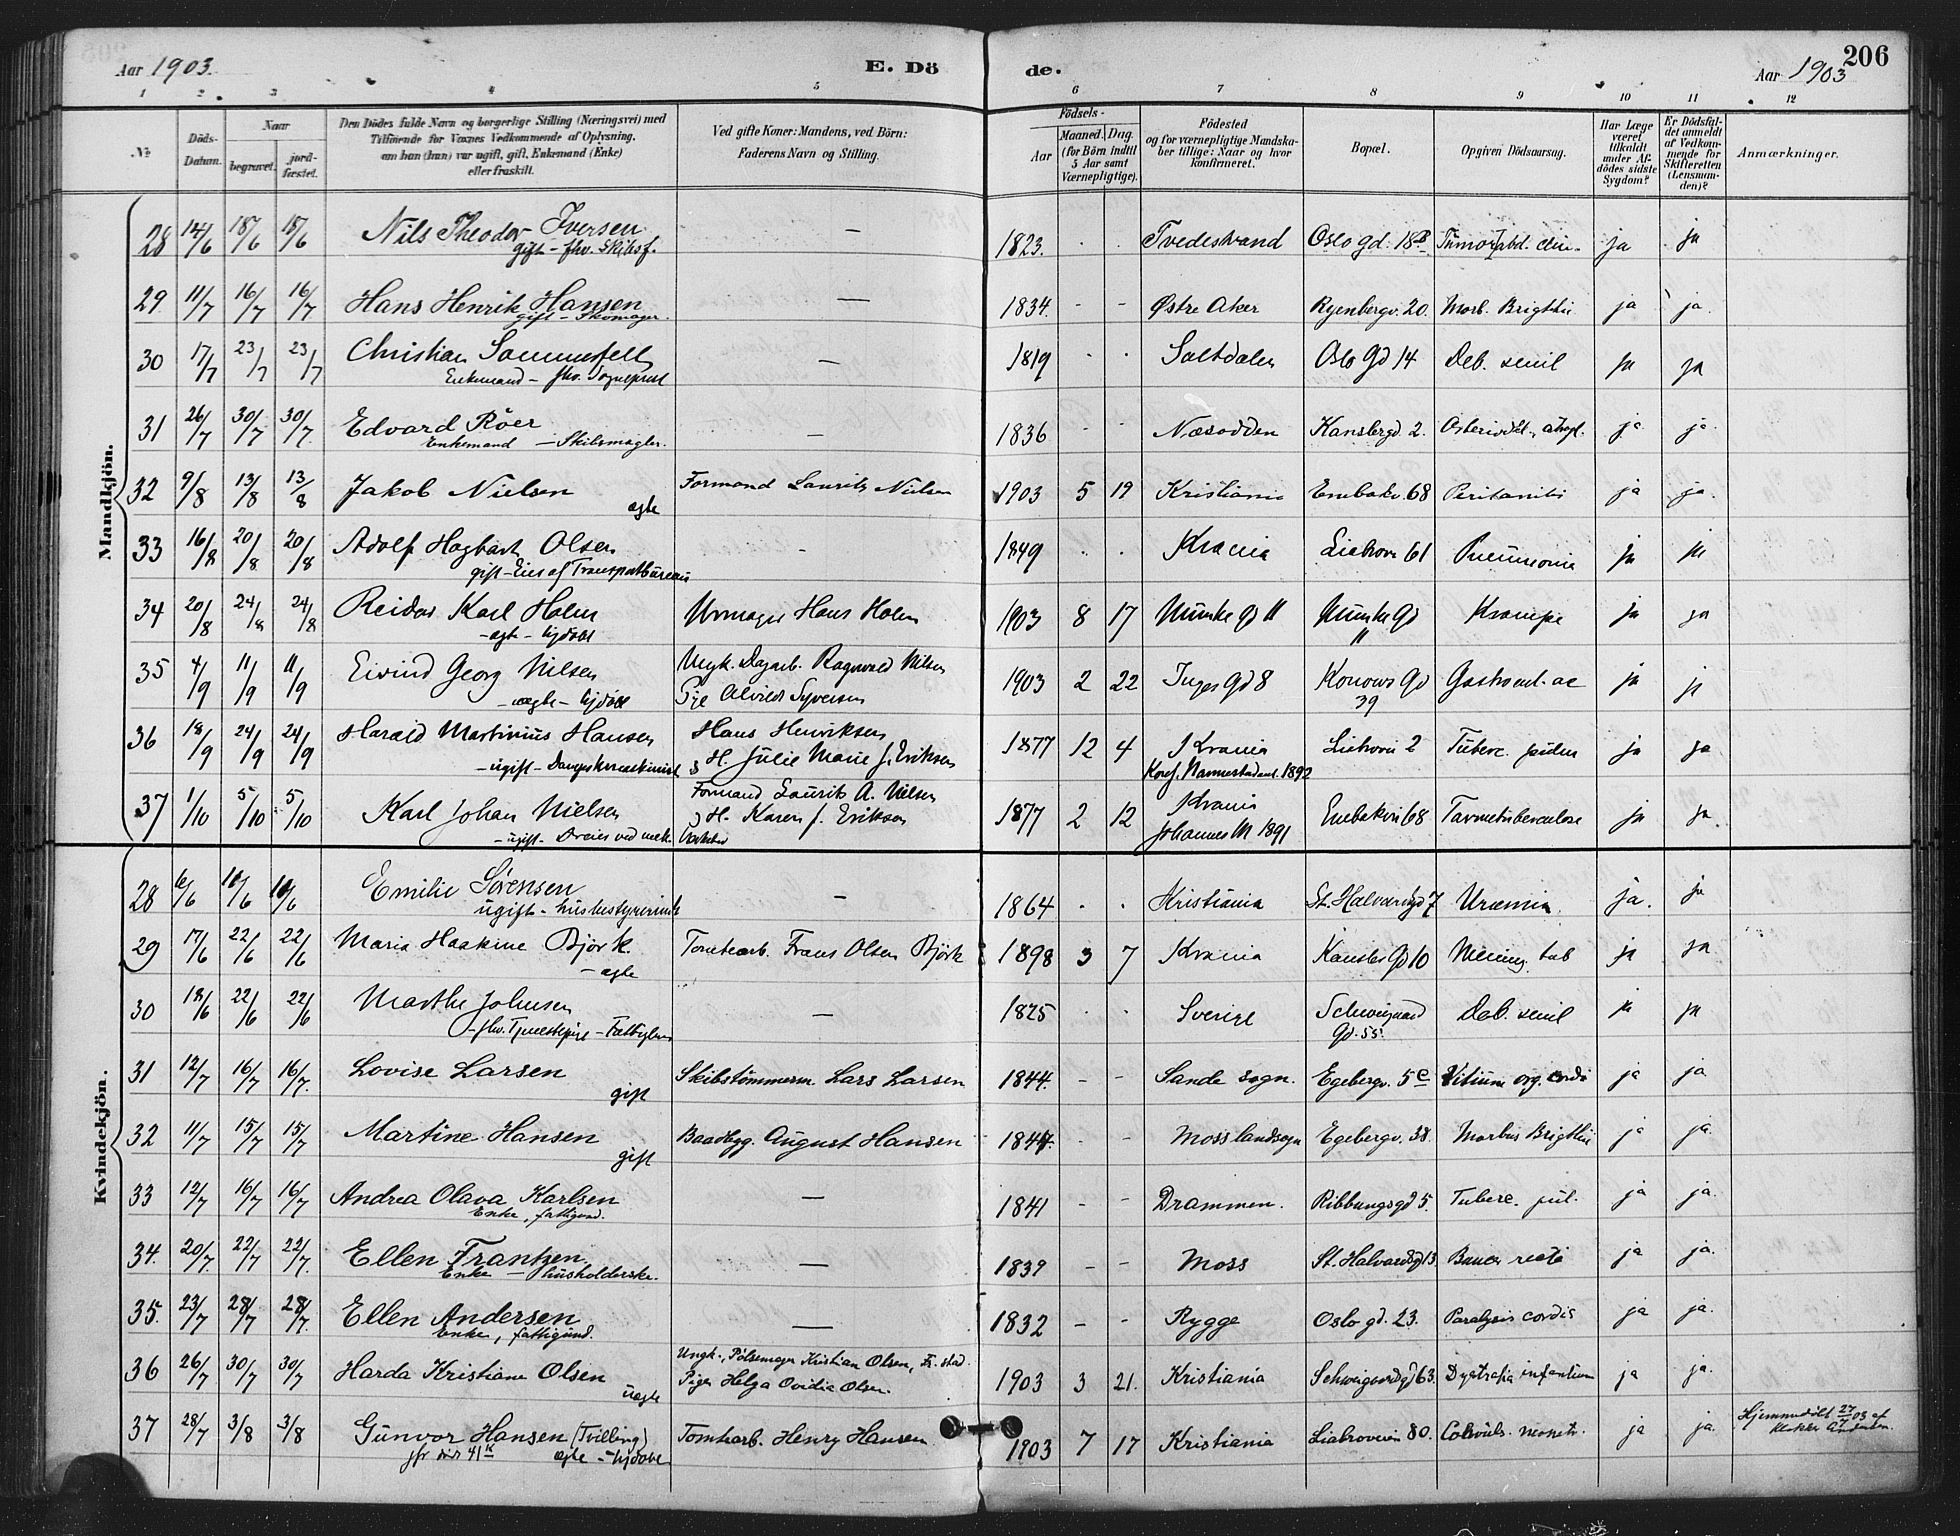 206
Aar 1903. E. Dö de. Aar 1903
1 2 3 4 5 6 7 8 9 10 11 12
No. Döds-Datum. Naar begravet. jordfæstet. Den Dödes fulde Navn og borgerlige Stilling (Næringsvei) med Tilföiende for Voxnes Vedkommende af Oplysning, om han (hun) var ugift, gift, Enkemand (Enke) eller fraskilt. Ved gifte Koner: Mandens, ved Börn: Faderens Navn og Stilling. Födsels- Aar Maaned. Dag. (for Börn indtil 5 Aar samt Værnepligtige). Födested og for værnepligtige Mandskaber tillige: Naar og hvor konfirmeret. Bopæl. Opgiven Dödsaarsag. Har Læge været tilkaldt under Afdödes sidste Sygdom? Er Dödsfaldet anmeldt af Vedkommende for Skifteretten (Lensmanden)? Anmærkninger.
Mandkjön.
28 14/6 18/6 18/6 Nils Theodor Iversen — 1823. Tvedestrand Oslo gd. 18B. Tumor abd. ja ja
gift - fhv. Skibsf.
29. 11/7 16/7 16/7 Hans Henrik Hansen — 1834. - - Østre Aker Ryenbergv. 20. Morb. Brigthii ja ja.
gift - Skomager.
30 17/7 23/7 23/7 Christian Sommerfelt — 1819 Saltdalen Oslo Gd 14 Deb. senil ja ja
Enkemand - fhv. Sogneprest
31 26/7 30/7 30/7. Edvard Röer — 1836 Næsodden Kanslergd. 2. ja ja
Enkemand — Skibsmægler.
32 9/8 13/8 13/8 Jakob Nielsen Formand Laurits Nielsen 1903 5 19 Kristiania Enebakv. 68 Peritonitis ja ja.
ægte
33 16/8 20/8 20/8 Adolf Hagbart Olsen - 1849 Krania Liabrovn 61 Pneumonia ja ja
gift - Eier af Transportbureau
34 20/8 24/8 24/8 Reidar Karl Holm Urmager Hans Holm 1903 8 17 Munke Gd 11 Munke Gd 11 Krampe ja ja
- ægte - hjdöbt
35 4/9 11/9 11/9 Eivind Georg Nilsen Ungk. Dagarb. Ragnvald Nilsen 1903 2 22 Inges Gd 8 Konows Gd 39 Gastroent. ac ja ja
- uægte - hjdöbt Pige Alvilde Syversen
36 18/9 24/9 24/9 Harald Martinius Hansen Hans Henriksen 1877 12 4 Krania Liabrovn 2 Tuberc. ja ja
- ugift - & H. Julie Marie f. Eriksen Konf. 1892
37 1/10 5/10 5/10 Karl Johan Nielsen Formand Laurits A. Nielsen 1877 2 12 Krania Enebakvn 68 Tarmetuberculose ja ja.
- ugift - Dreier ved mek. Verksted & H. Karen f. Erikson Johannes M 1891
Kvindekjön.
28 6/6 11/6 11/6 Emilie Sörensen — 1864 Kristiania St. Halvardsgd 7 Uræmia. ja. ja
ugift - husbestyrerinde
29 17/6 22/6 22/6 Maria Haakine Björk Tomtearb. Frans Olsen Björk 1898 3 7 Krania Kansler Gd 10 Mening. tub ja ja
- ægte
30 18/6 22/6 22/6 Marthe Johnsen — 1825 Sverige Schweigaard Gd. 55. Deb. senil ja ja
- fhv. Tjenestepige -
31 12/7 16/7 16/7. Lovise Larsen Skibstömmerm. Lars Larsen 1844. - - Sande sogn. Egebergv. 5c Vitium org. cordis ja ja
gift
32 11/7 15/7 15/7 Martine Hansen Baadbyg. August Hansen 1844. - - Moss landsogn Egebergv. 38. Morbus Brigthii ja ja.
gift
33 12/7 16/7 16/7 Andrea Olava Karlsen — 1841 - - Drammen. Ribbungsgd 5. Tuberc. pul. ja ja.
Enke, fattigund.
34. 20/7. 22/7 22/7. Ellen Frantzen. — 1839 - - Moss St. Halvardsgd 13. Cancer recti ja ja.
Enke — husholderske.
35. 23/7 28/7 28/7. Ellen Andersen — 1832 - - Rygge Oslo gd. 23. Paralysis cordis ja ja.
Enke, fattigund.
36 26/7 30/7 30/7 Harda Kristiane Olsen Ungk., Pölsemager Kristian Olsen, Fr.stad 1903 3 21. Kristiania Schweigaardsgd 63. Dystrofia infantium ja ja.
uægte Pige Helga Ovidia Olsen
37 28/7 3/8 3/8 Gunvor Hansen (Tvilling) Tomtarb. Henry Hansen 1903 7 17 Kristiania Liabroveien 80. ja ja. Hjemmedöbt 27/7 03 af Klokker Andersen.
jfr. ægte - hjdöbt